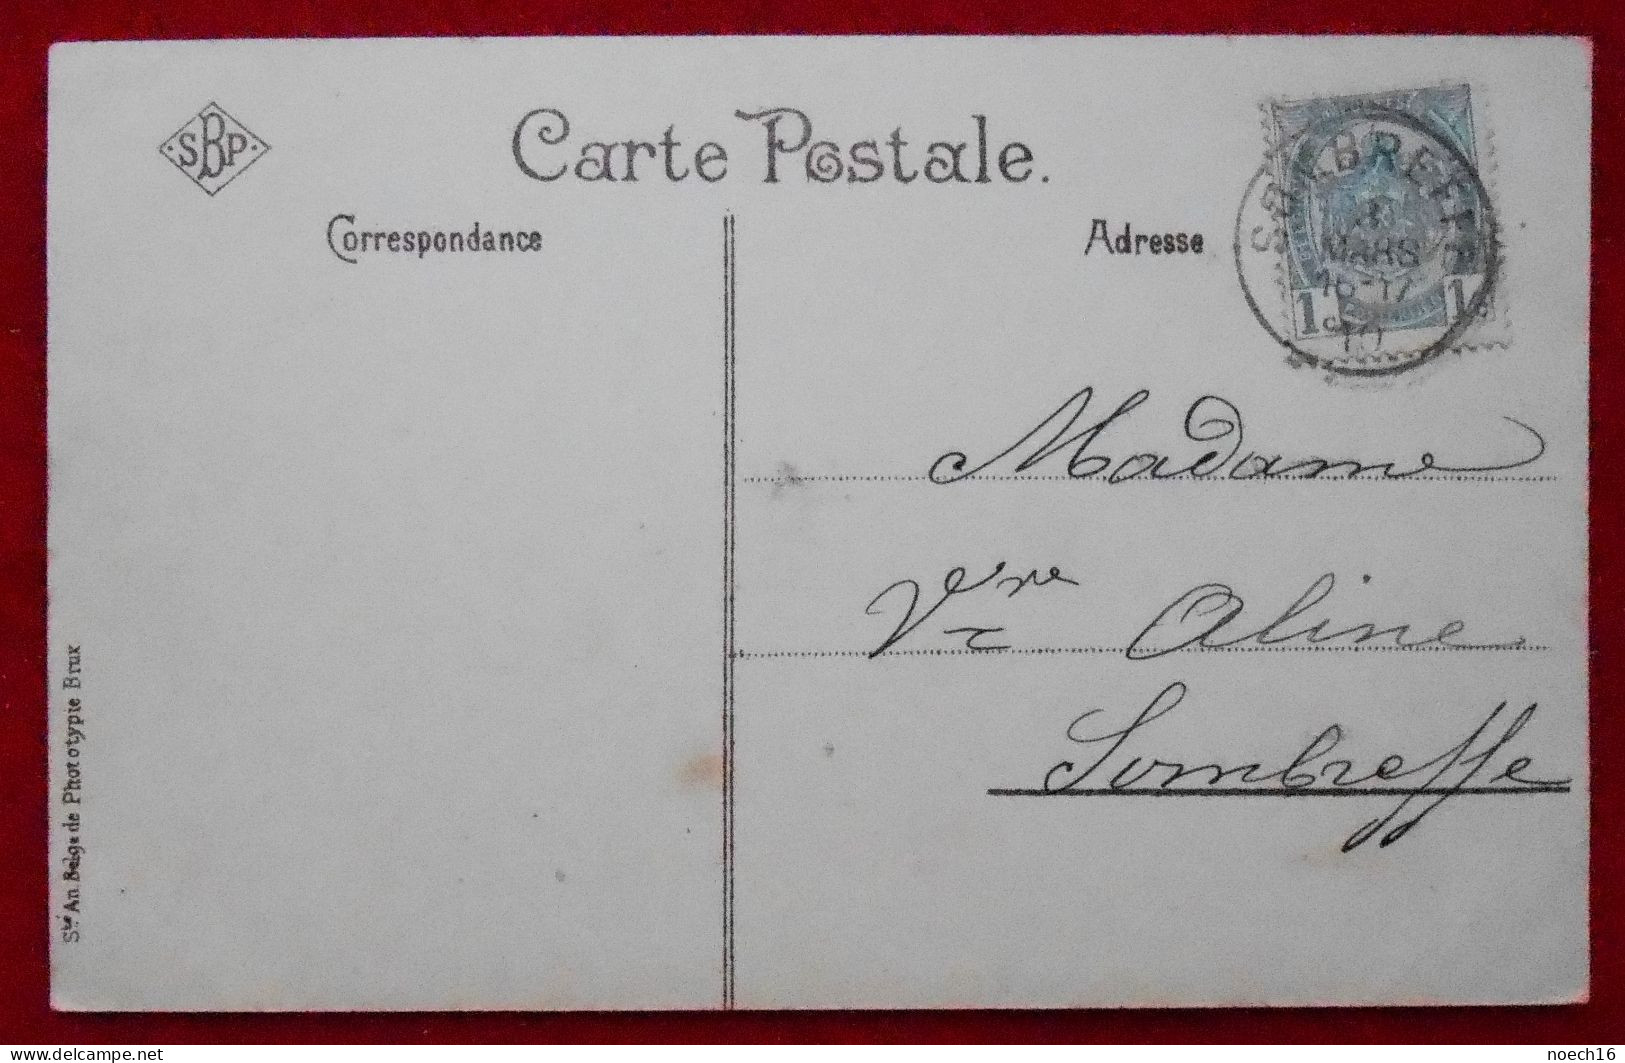 SBP
Carte Postale.
Correspondance
Adresse
SOMBREFFE
MARS
16-17
1910
1 1
Madame
Vve Aline
Sombreffe
Sté An Belge de Phototypie Brux
delcampe.net
noech16